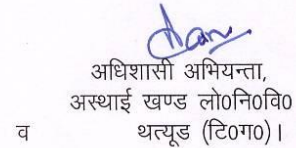 अधिशासी अभियन्ता,
अस्थाई खण्ड लो०नि०वि०
व थत्यूड (टि०ग०)।